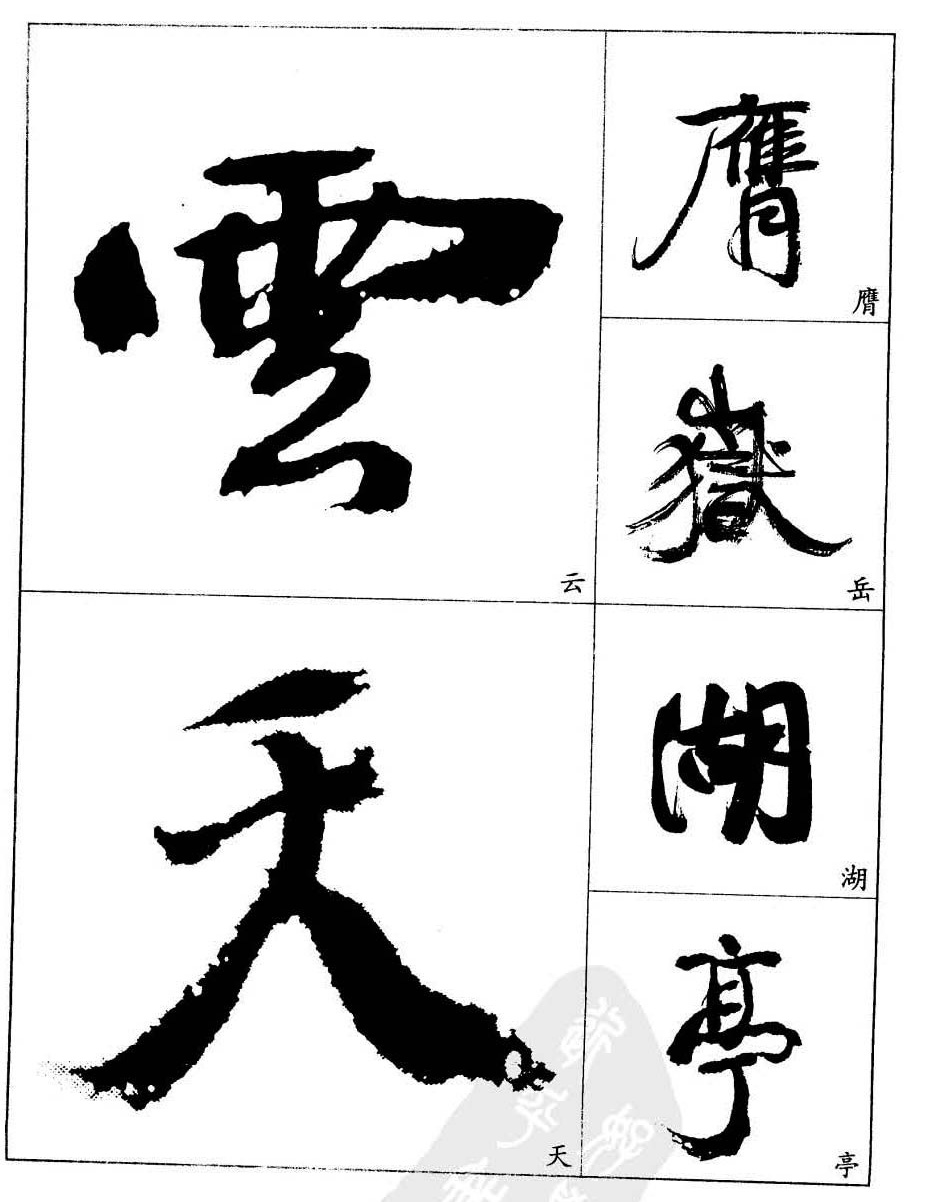 雲
云
天
天
膺
膺
嶽
岳
湖
湖
亭
亭